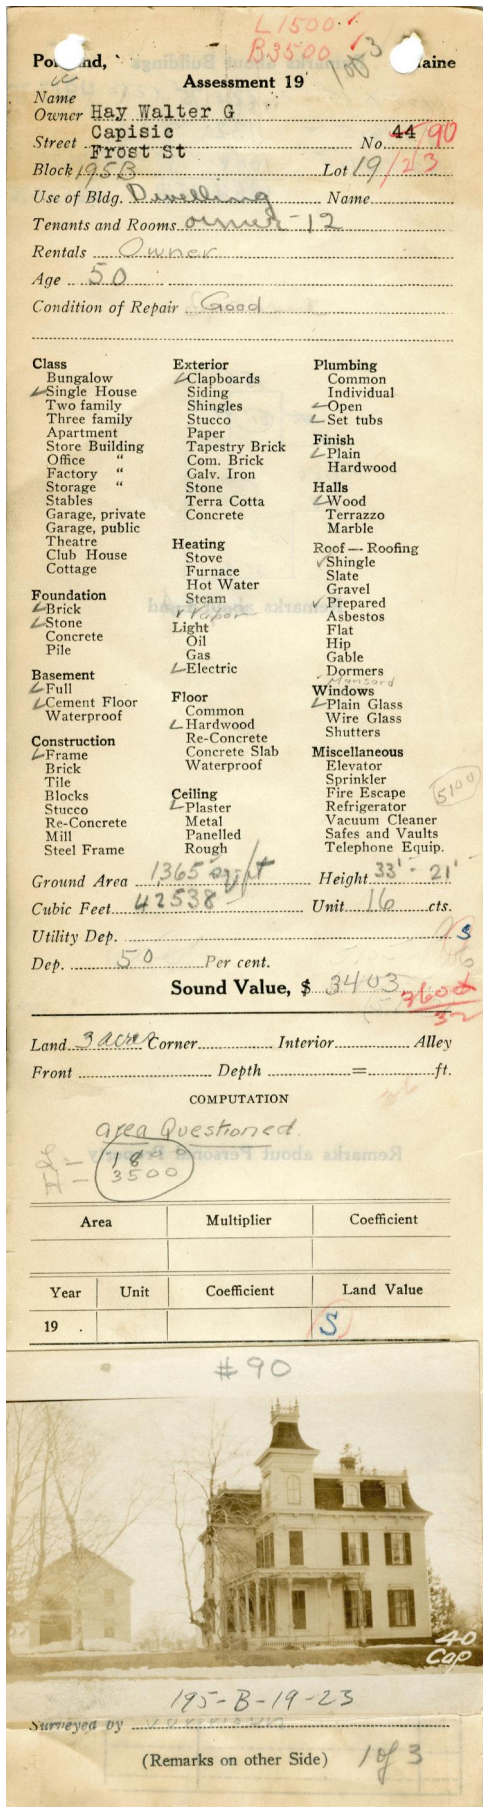 L 1500
B 3500
Portland, Maine
Assessment 19
Name
Owner Hay Walter G
Capisic
Street Frost St No. 44 90
Block 195B Lot 19/23
Use of Bldg. Dwelling Name
Tenants and Rooms owner - 12
Rentals Owner
Age 50
Condition of Repair Good
Class
Bungalow
Single House
Two family
Three family
Apartment
Store Building
Office "
Factory "
Storage "
Stables
Garage, private
Garage, public
Theatre
Club House
Cottage
Foundation
Brick
Stone
Concrete
Pile
Basement
Full
Cement Floor
Waterproof
Construction
Frame
Brick
Tile
Blocks
Stucco
Re-Concrete
Mill
Steel Frame
Exterior
Clapboards
Siding
Shingles
Stucco
Paper
Tapestry Brick
Com. Brick
Galv. Iron
Stone
Terra Cotta
Concrete
Heating
Stove
Furnace
Hot Water
Steam
Vapor
Light
Oil
Gas
Electric
Floor
Common
Hardwood
Re-Concrete
Concrete Slab
Waterproof
Ceiling
Plaster
Metal
Panelled
Rough
Plumbing
Common
Individual
Open
Set tubs
Finish
Plain
Hardwood
Halls
Wood
Terrazzo
Marble
Roof — Roofing
Shingle
Slate
Gravel
Prepared
Asbestos
Flat
Hip
Gable
Dormers
Mansard
Windows
Plain Glass
Wire Glass
Shutters
Miscellaneous
Elevator
Sprinkler
Fire Escape
Refrigerator
Vacuum Cleaner
Safes and Vaults
Telephone Equip.
5100
Ground Area 1365 sq ft Height 33' - 21'
Cubic Feet 42538 Unit 16 cts.
Utility Dep. S
Dep. 50 Per cent.
Sound Value, $ 3403
3600
Land 3 acres Corner Interior Alley
Front Depth = ft.
36
COMPUTATION
area Questioned.
3500
Area Multiplier Coefficient
Year Unit Coefficient Land Value
19 . S
#90
40
Cap
195-B-19-23
Surveyed by
(Remarks on other Side) 1 of 3